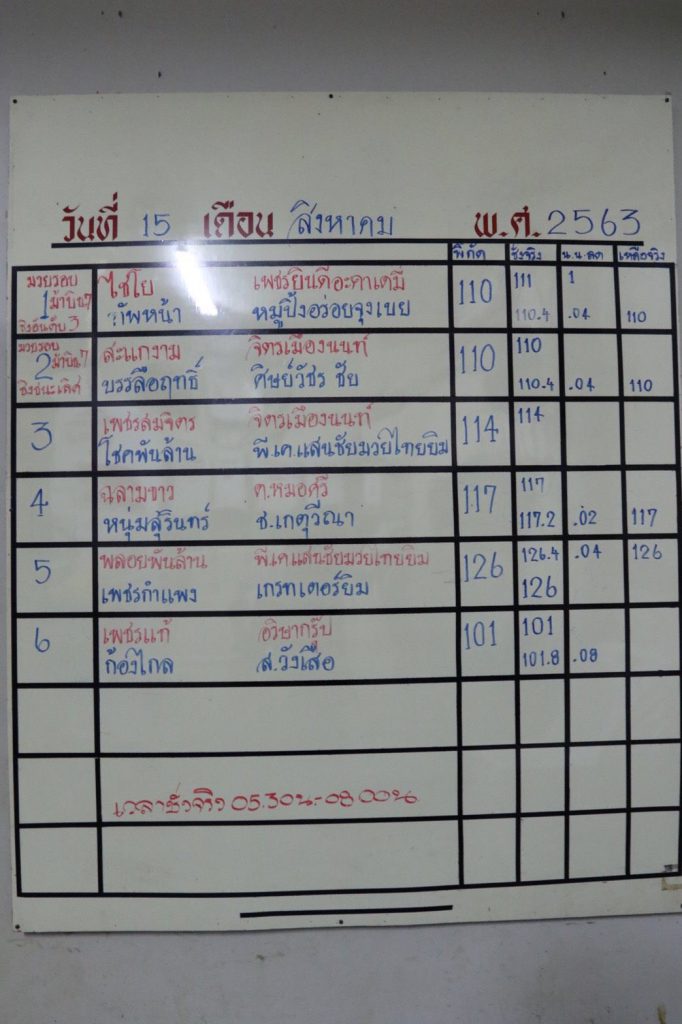 วันที่ 15 เดือน สิงหาคม พ.ศ. 2563
พิกัด ชั่งจริง น.น.ลด เหลือจริง
มวยรอบ ไชโย เพชรยินดีอะคาเดมี่ 110 111 1
1 ม้าบิน7 ทัพหน้า หมูปิ้งอร่อยจุงเบย 110.4 .04 110
ชิงอันดับ 3
มวยรอบ สะแกงาม จิตรเมืองนนท์ 110 110
2 ม้าบิน7 บรรลือฤทธิ์ ศิษย์วัชรชัย 110.4 .04 110
ชิงชนะเลิศ
3 เพชรสมจิตร จิตรเมืองนนท์ 114 114
โชคพันล้าน พี.เค.แสนชัยมวยไทยยิม
4 ฉลามขาว ต.หมอศรี 117 117
หนุ่มสุรินทร์ ช.เกตุวีณา 117.2 .02 117
5 พลอยพันล้าน พี.เค.แสนชัยมวยไทยยิม 126 126.4 .04 126
เพชรกำแพง เกรทเตอร์ยิม 126
6 เพชรแท้ อวิษากรุ๊ป 101 101
ก้องไกล ส.วังเสือ 101.8 .08
เวลาชั่งจริง 05.30น.-08.00น